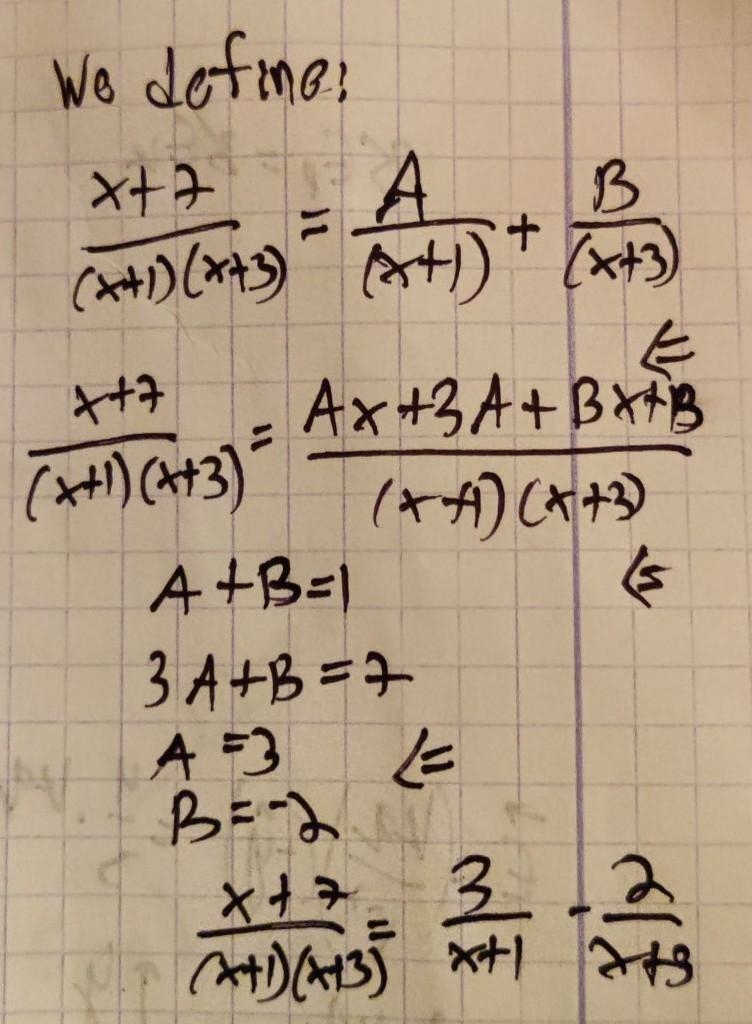 We define:
x+7/(x+1)(x+3) = A/(x+1) + B/(x+3)
<=
x+7/(x+1)(x+3) = Ax+3A+Bx+B/(x+1)(x+3)
<=
A+B=1
3A+B=7
A=3 <=
B=-2
x+7/(x+1)(x+3) = 3/x+1 - 2/x+3